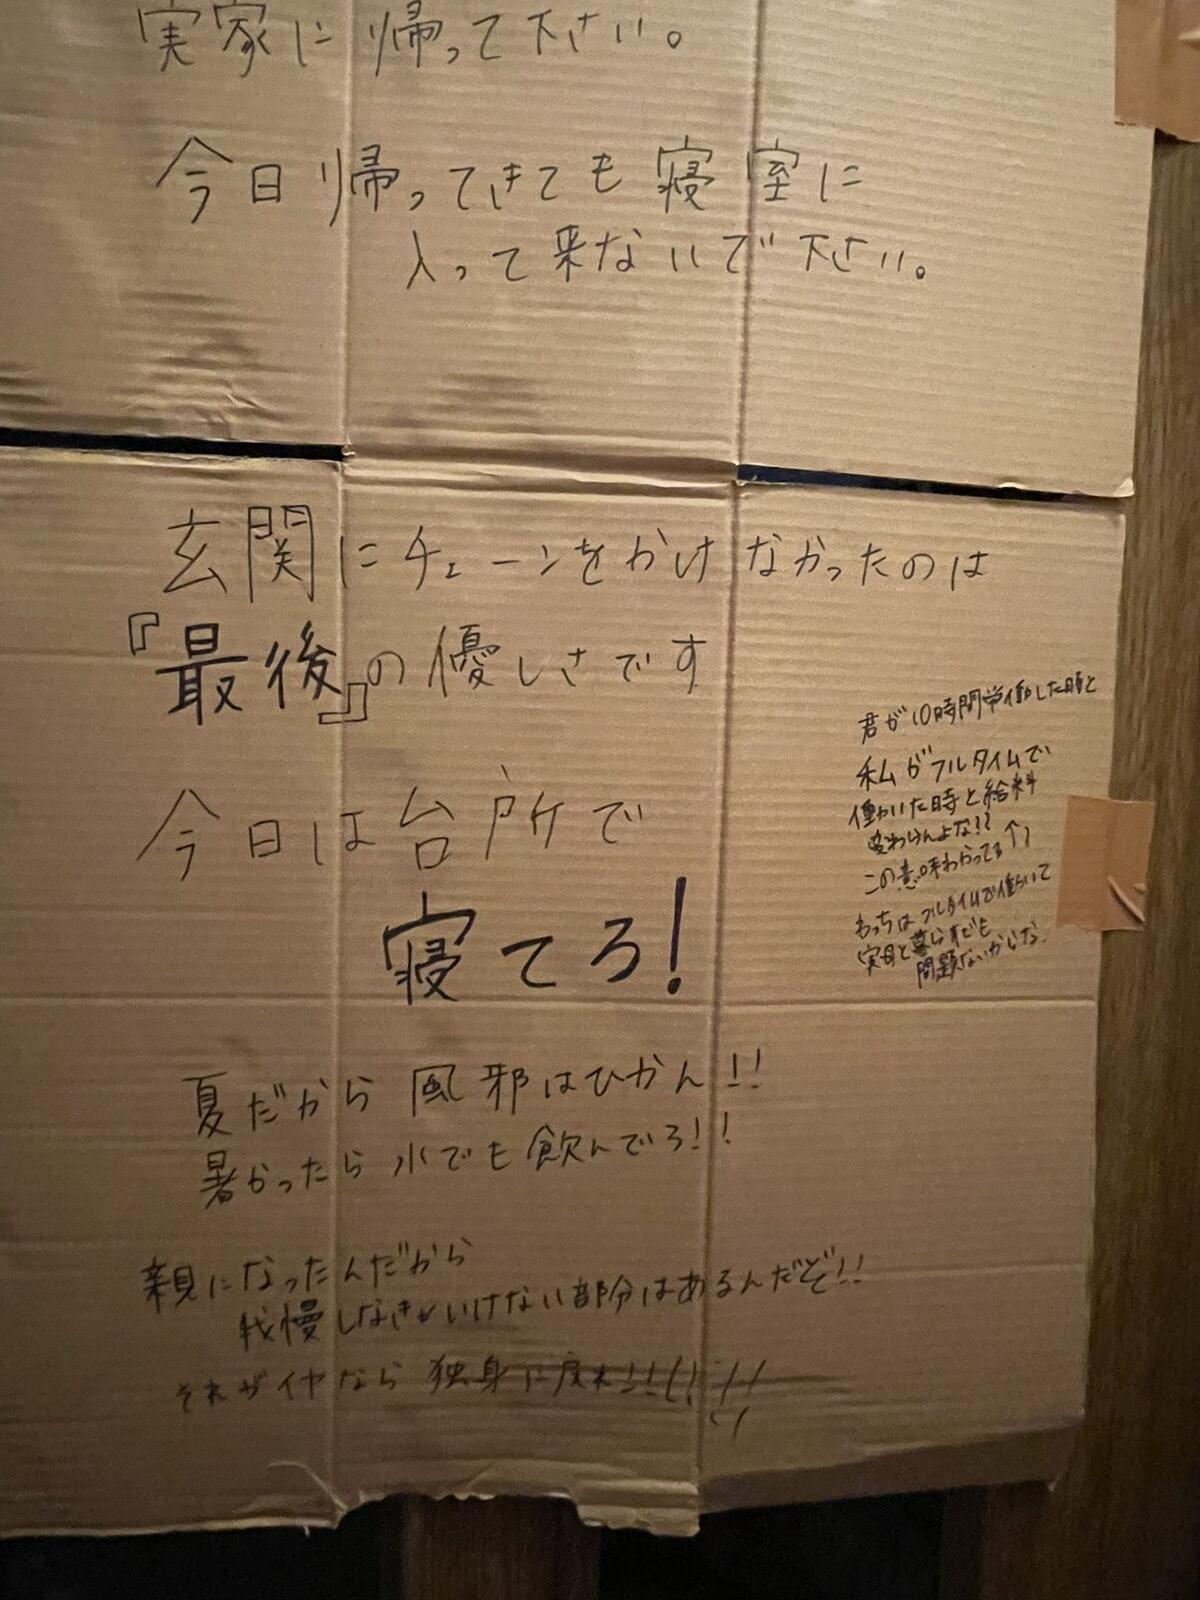 実家に帰って下さい。
今日帰ってきても寝室に
入って来ないで下さい。
玄関にチェーンをかけなかったのは
『最後』の優しさです
今日は台所で
寝てろ!
君が10時間労働した時と
私がフルタイムで
働いた時と給料
変わらんよな!?
この意味わかってる↑?
もっちはフルタイムで働いて
実母と暮らすでも
問題ないからな。
夏だから風邪はひかん!!
暑かったら水でも飲んでろ!!
親になったんだから
我慢しなきゃいけない部分はあるんだぞ!!
それがイヤなら独身に戻れ!!!!!!